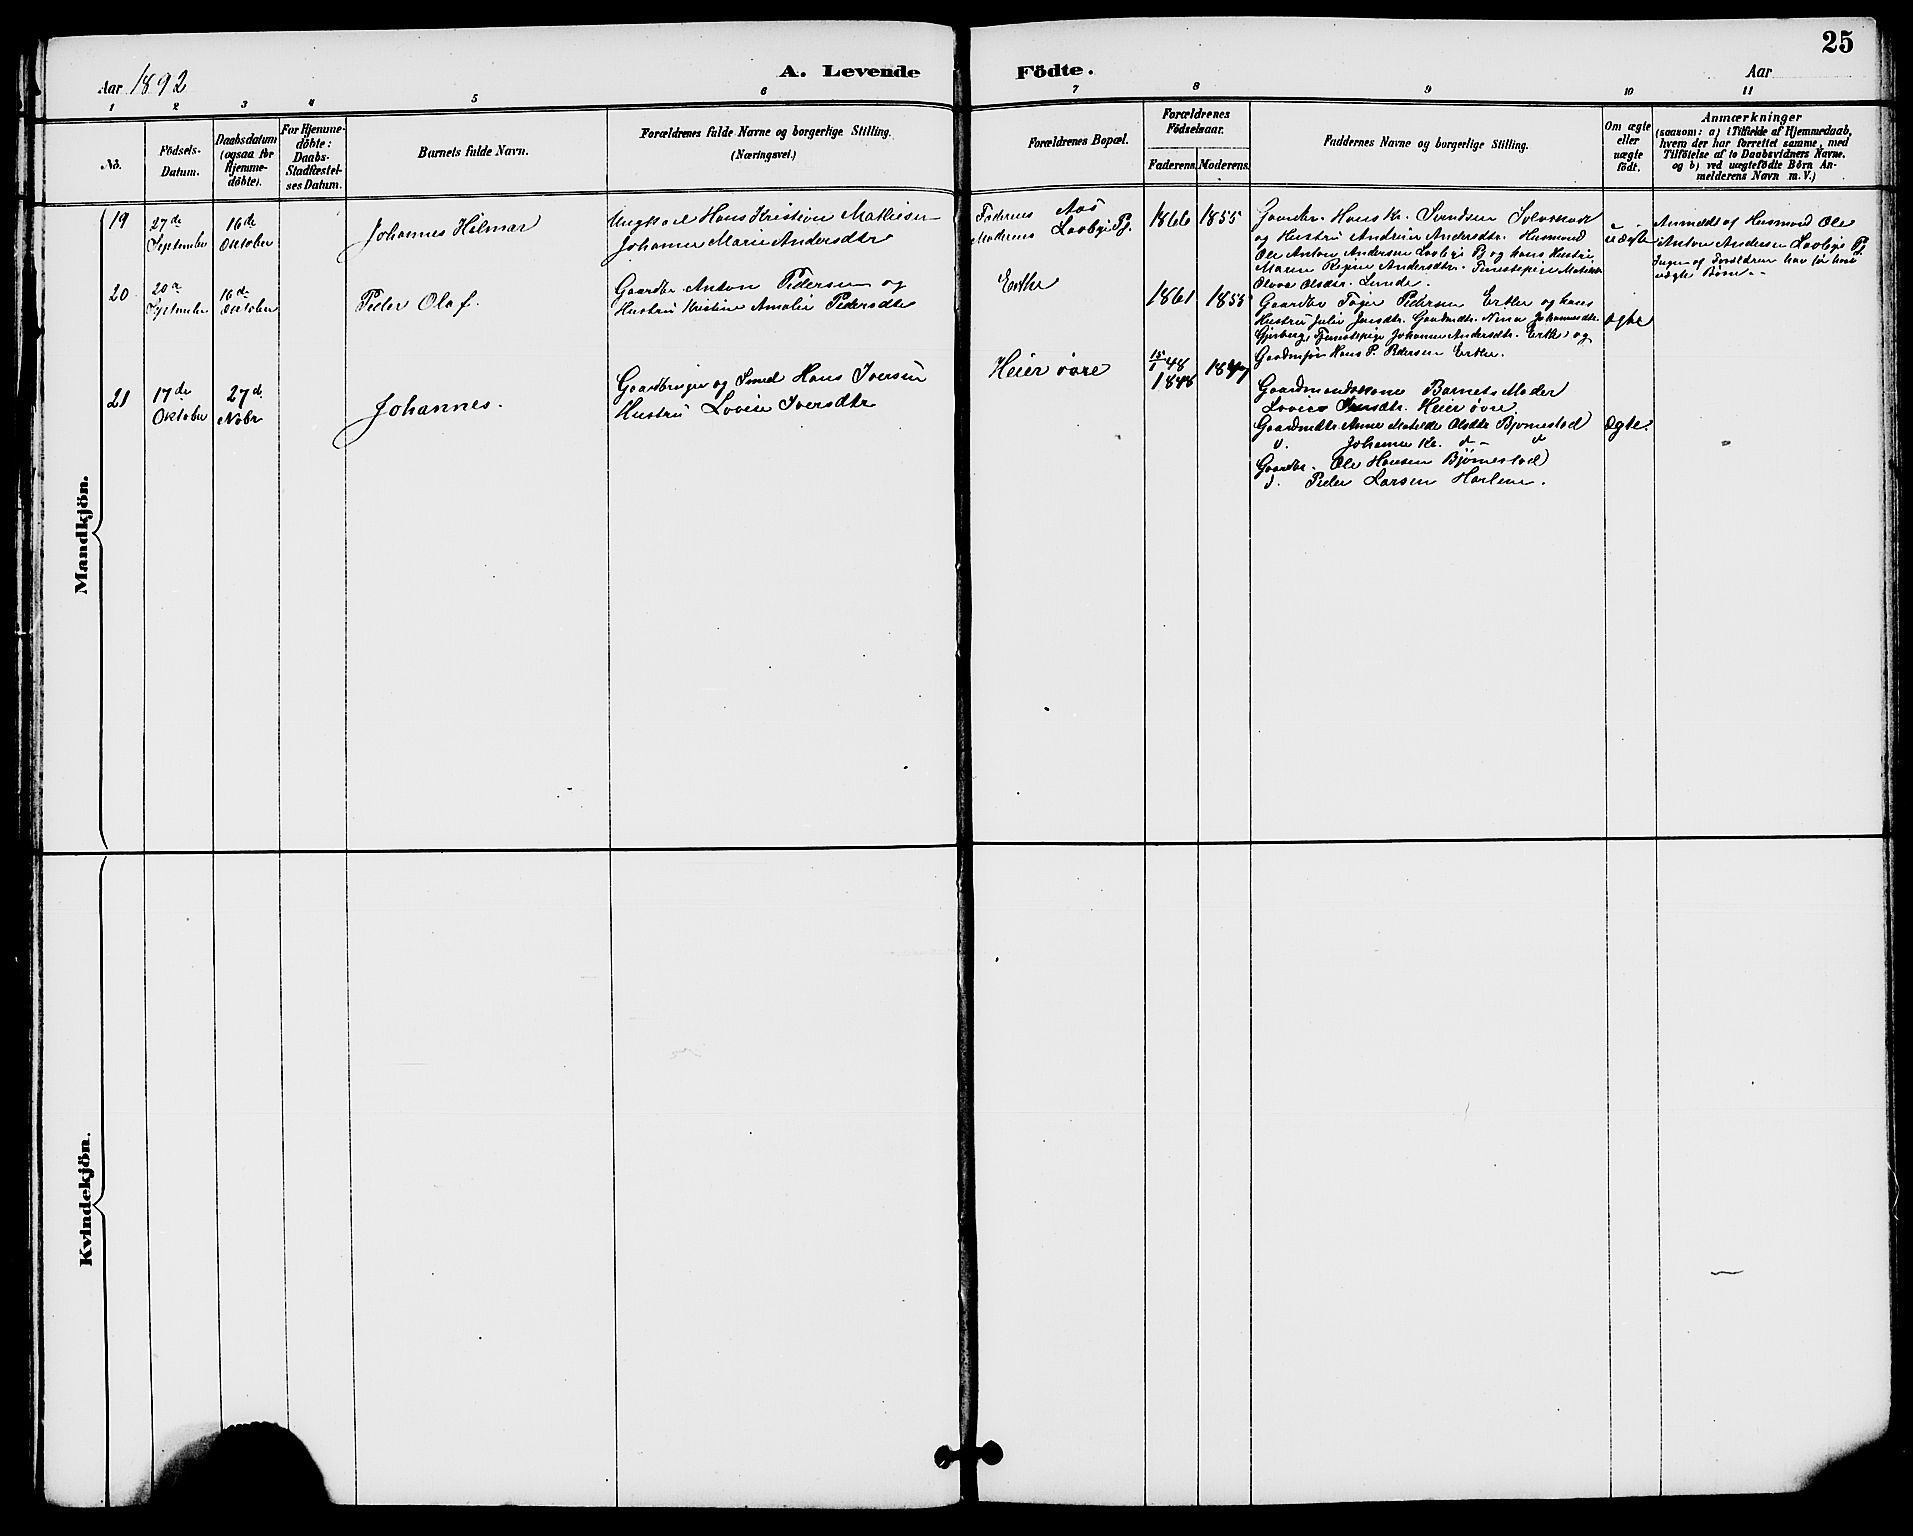 25
Aar 1892
A. Levende Födte.
Aar
1 2 3 4 5 6 7 8 9 10 11
No.
Födsels-
Datum.
Daabsdatum
(ogsaa for
Hjemme-
döbte).
For Hjemme-
döbte:
Daabs-
Stadfæstel-
ses Datum.
Barnets fulde Navn.
Forældrenes fulde Navne og borgerlige Stilling.
(Næringsvei.)
Forældrenes Bopæl.
Forældrenes
Födselsaar.
Faderens. Moderens.
Faddernes Navne og borgerlige Stilling.
Om ægte
eller
uægte
födt.
Anmærkninger
(saasom: a) i Tilfælde af Hjemmedaab,
hvem der har forrettet samme, med
Tilföielse af to Daabsvidners Navne.
og b) ved uægtefödte Börn An-
melderens Navn m. V.)
Mandkjön.
19
27de
September
16de
Oktober
Johannes Hilmar
Ungkarl Hans Kristian Mathisen
Johanne Marie Andersdtr
Faderens Aas
Moderens Lovbye Pg.
1866 1855
Gaardbr. Hans Kr. Svendsen
og Hustru Andrine Andersdtr. Husmand
Ole Anton Andersen Lovbye P og hans Hustru
Maren Regine Andersdtr.
Olava Olsdtr. Lunde.
uægte
Anmeldt af Husmand Ole
Anton Andersen Lovbye Pg.
Ingen af Forældrene har før havt
uægte Børn
20
20de
September
16de
Oktober
Peder Olaf.
Gaardbr. Anton Pedersen og
Hustru Kristine Amalie Pedersdtr
Ertke
1861 1855
Gaardbr Pedersen og hans
Hustru Julie Johannesdtr.
Tjenestepige Johanne Andersdtr. og
Hans P. Pedersen
ægte
21
17de
Oktober
27de
Nobr
Johannes.
Gaardbruger og Smed Hans Iversen
Hustru Lovise Iversdtr
Heier øvre
15/1 48
1848 1847
Gaardmandskone Barnets Moder
Lovise Iversdtr. Heier øvre.
Gaardmdtr. Anne Matilde Olsdtr Bjørnestad
d. Johanne Kr. d - d
Gaardbr. Ole Hansen Bjørnestad
d. Peder Larsen Harlem.
ægte.
Kvindekjön.